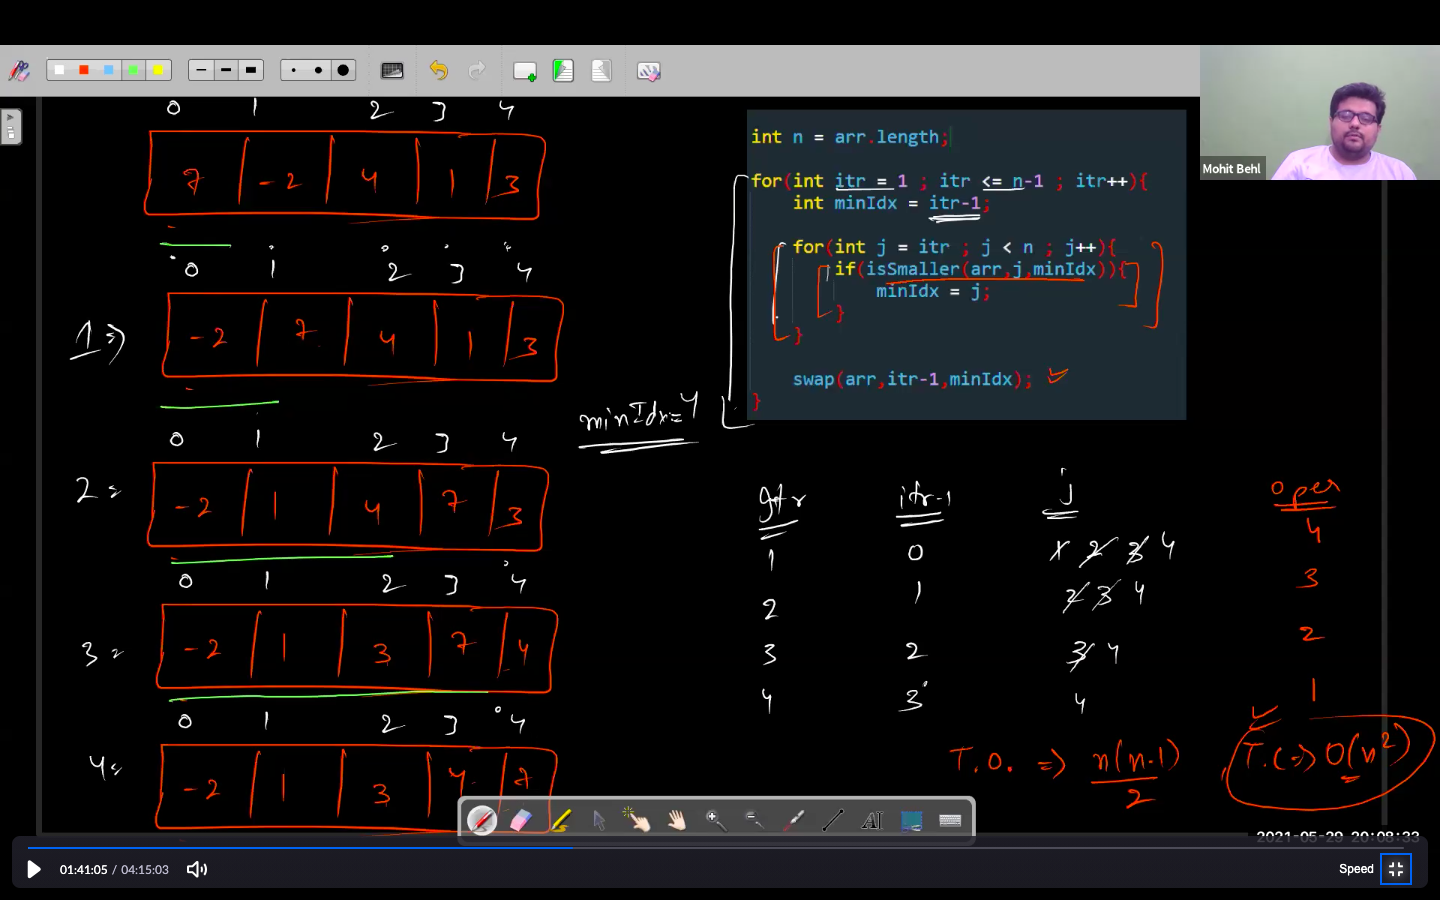 0 1 2 3 4
7 -2 4 1 3
0 1 2 3 4
1⇒ -2 7 4 1 3
0 1 2 3 4
2⇒ -2 1 4 7 3
0 1 2 3 4
3⇒ -2 1 3 7 4
0 1 2 3 4
4⇒ -2 1 3 4 7
minIdx=4
int n = arr.length;
for(int itr = 1 ; itr <= n-1 ; itr++){
int minIdx = itr-1;
for(int j = itr ; j < n ; j++){
if(isSmaller(arr,j,minIdx)){
minIdx = j;
}
}
swap(arr,itr-1,minIdx);
}
Mohit Behl
itr itr-1 j oper
1 0 1 2 3 4 4
2 1 2 3 4 3
3 2 3 4 2
4 3 4 1
T.O. ⇒ n(n-1)/2
T.C⇒ O(n²)
AI
2021-05-29 20:08:33
01:41:05 / 04:15:03
Speed